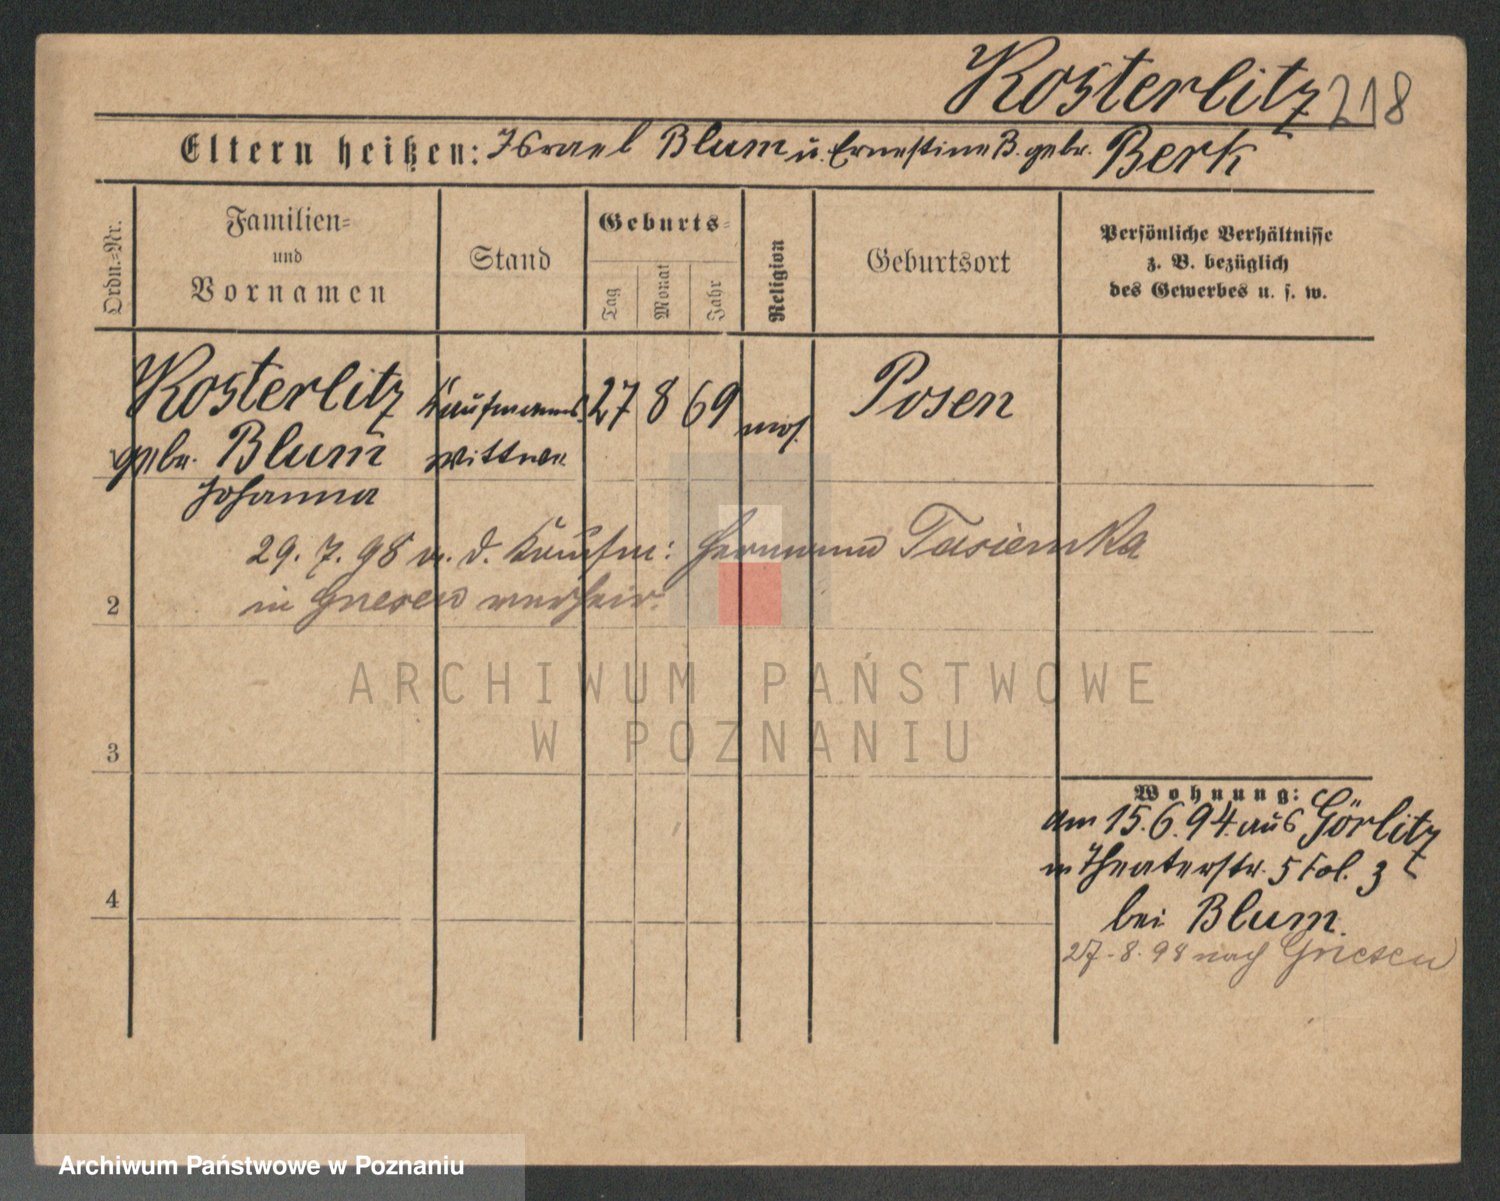 Kosterlitz 218
Eltern heißen: Israel Blum u. Ernestine B. gebr. Berk
Ordn.-Nr.
Familien-
und
Vornamen
Stand
Geburts-
Tag
Monat
Jahr
Religion
Geburtsort
Persönliche Verhältnisse
z. B. bezüglich
des Gewerbes u. s. w.
Kosterlitz Kaufmanns- 27 8 69 mos. Posen
gebr. Blum wittwe
Johanna
29. 7. 98 m. d. Kaufm: Hermann Tasiemka
2 in Gnesen verheir.
ARCHIWUM PAŃSTWOWE
W POZNANIU
3
Wohnung:
am 15.6.94 aus Görlitz
in Theaterstr. 5 fol. 3
4
bei Blum.
27.8.98 nach Gnesen
Archiwum Państwowe w Poznaniu